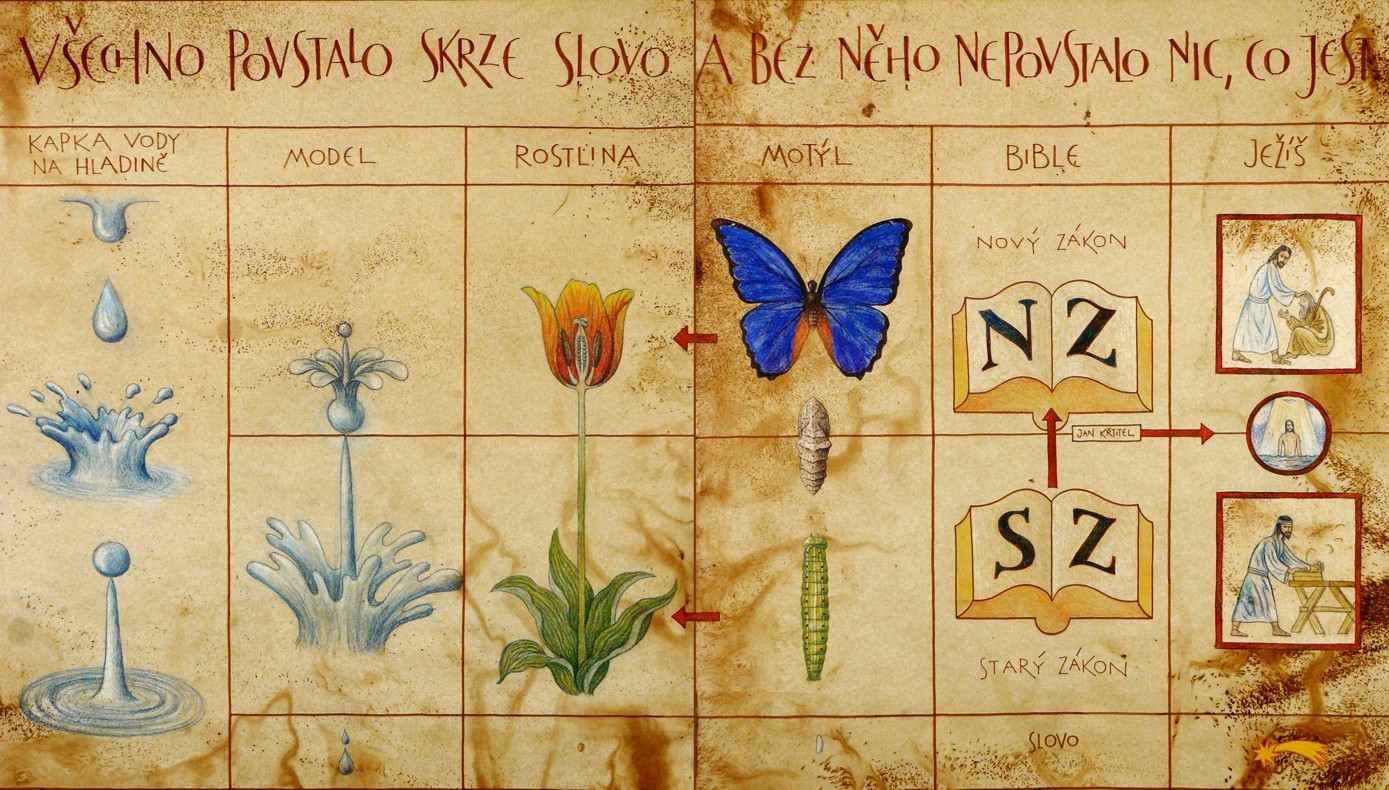 VŠECHNO POVSTALO SKRZE SLOVO A BEZ NĚHO NEPOVSTALO NIC, CO JEST.
KAPKA VODY
NA HLADINĚ
MODEL
ROSTLINA
MOTÝL
BIBLE
JEŽÍŠ
NOVÝ ZÁKON
N Z
JAN KŘTITEL
S Z
STARÝ ZÁKON
SLOVO